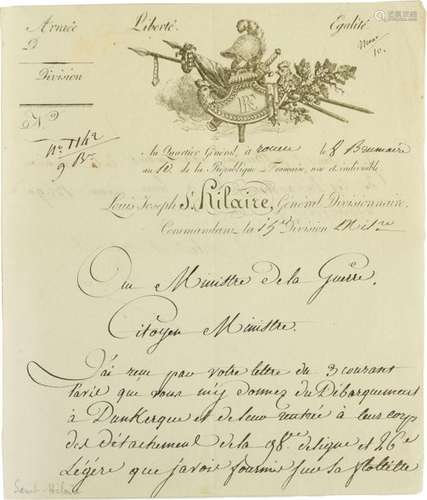 Armée
Liberté
Egalité
D
Division
N°
9 Bre
RF
Au Quartier Général, à rouen le 8 Brumaire
an 10 de la République Francaise, une et indivisible
Louis Joseph St Hilaire, Général Divisionnaire,
Commandant la 15e Division Mil.re
Au Ministre de la Guerre.
Citoyen Ministre.
J'ai recu par votre lettre du 3 courant
l'avis que vous m'y donnez du Débarquement
à Dunkerque et de leur rentrée à leur corp
des détachement de la 28e de ligne et 26e
Légère que j'avois fournis sur la flottille
Saint-Hilaire